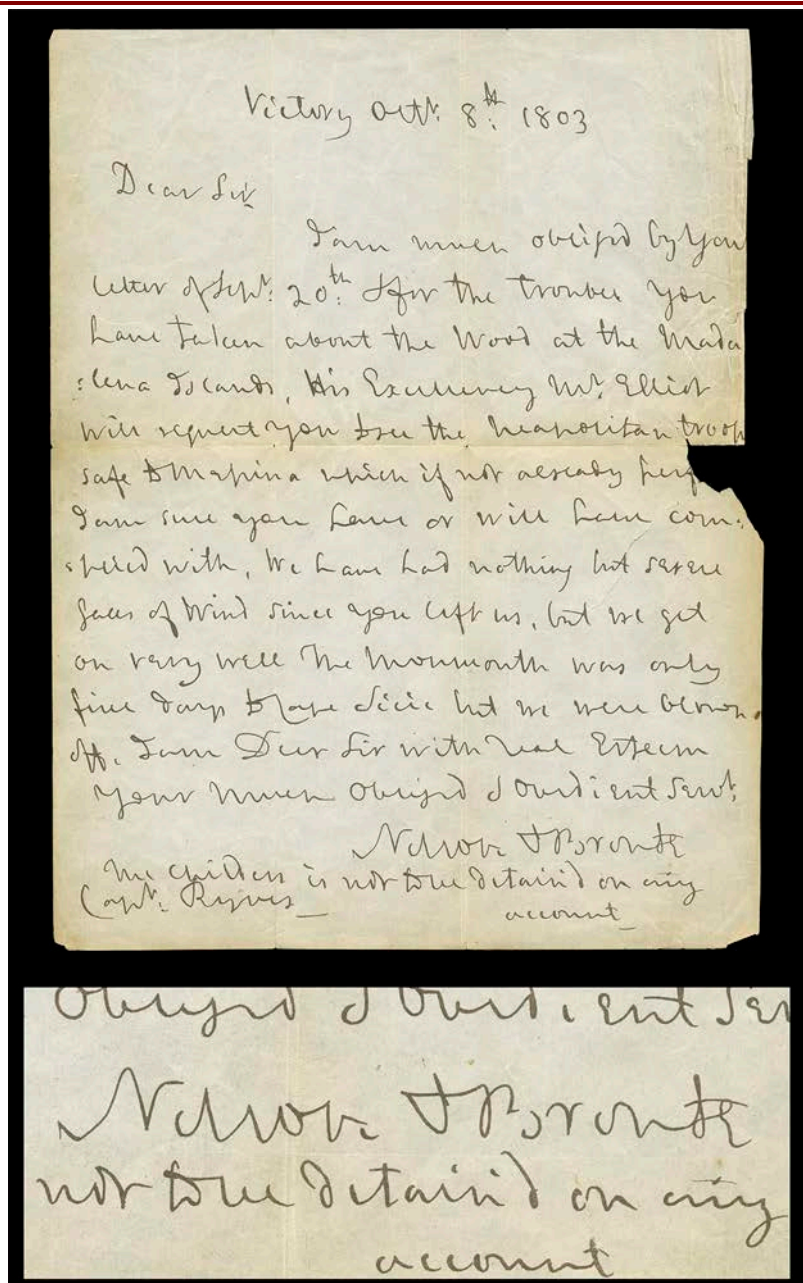 Victory Octr. 8th. 1803
Dear Sir
I am much obliged by your
letter of Septr. 20th. & for the trouble you
have taken about the Wood at the Mada
:lena Islands, His Excellency Mr. Elliot
will request you to see the Neapolitan troops
safe to Messina which if not already perf
I am sure you have or will have com:
:plied with, We have had nothing but severe
gales of Wind since you left us, but we get
on very well The Monmouth was only
five days to Cape Sicie but we were blown
off. I am Dear Sir with real Esteem
your much Obliged & Obedient Servt.
Nelson & Bronte
The Childers is not to be detain'd on any
account
Captn. Ryves
Obliged & Obedient Ser
Nelson & Bronte
not to be detain'd on any
account